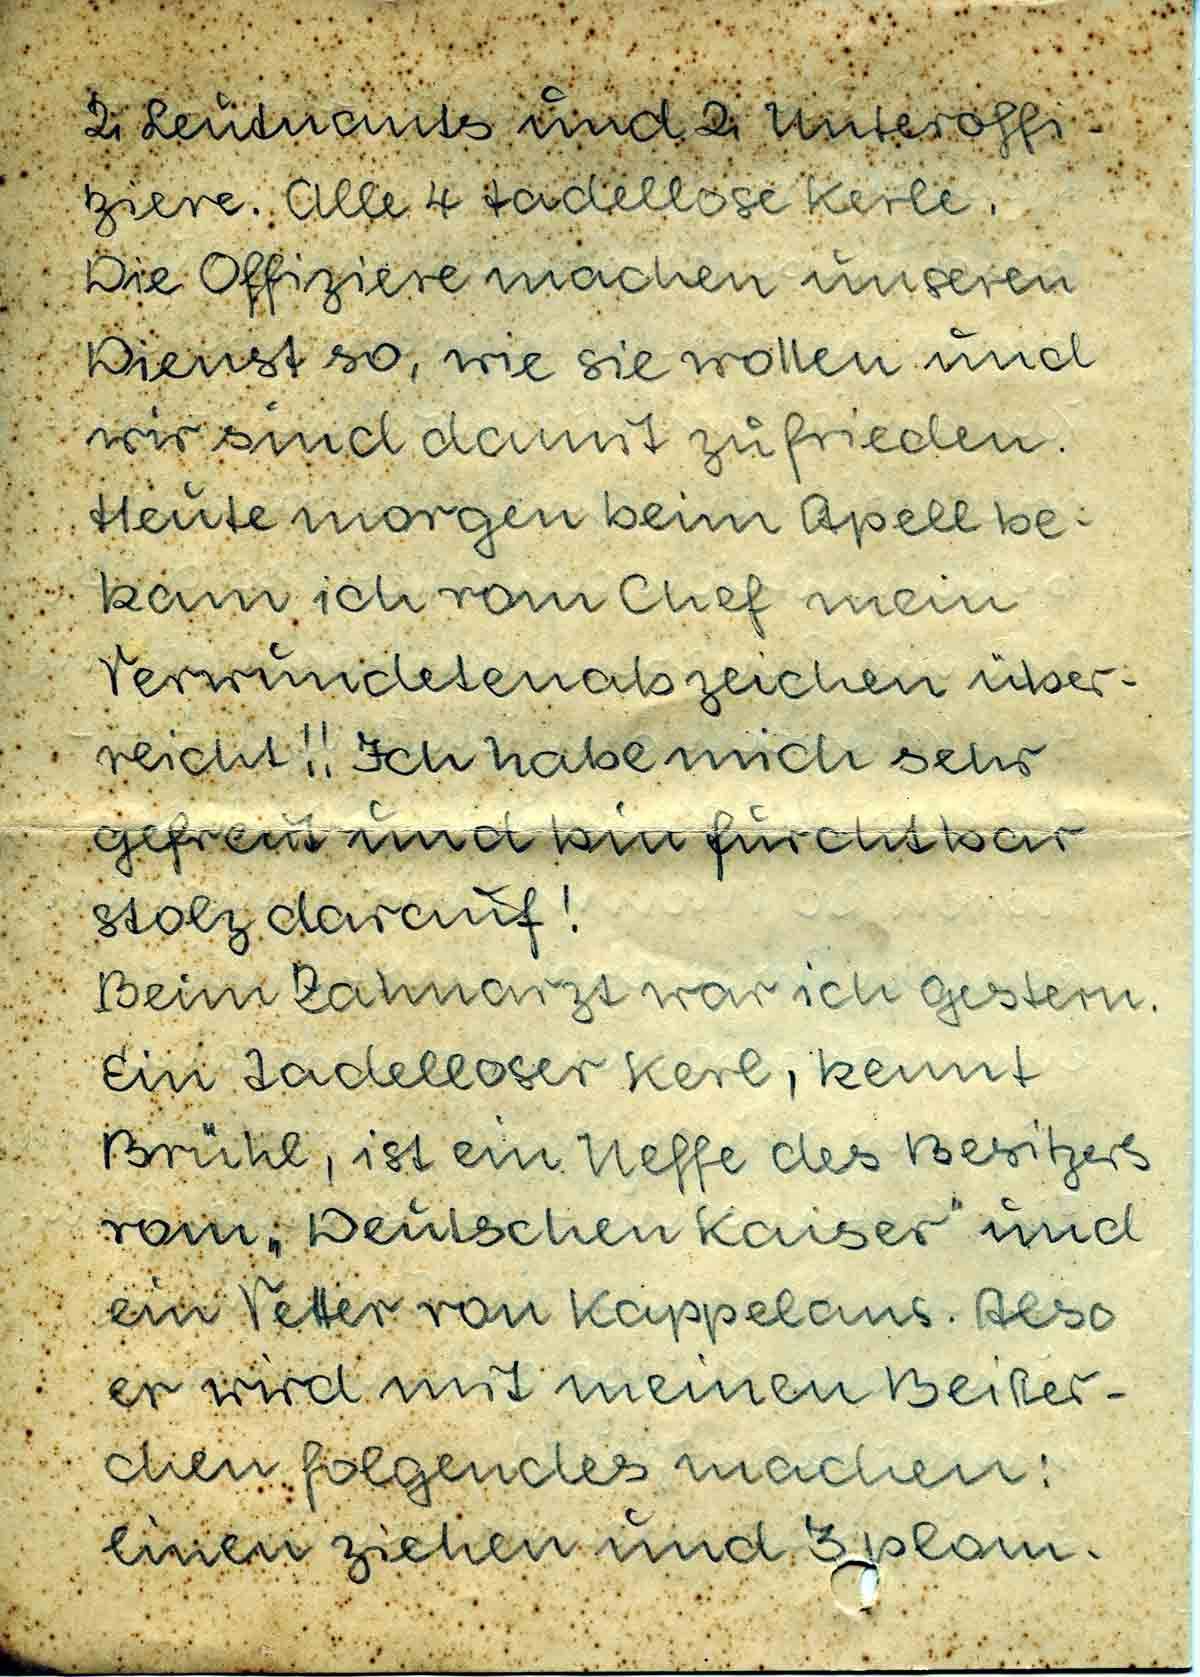 2 Leutnants und 2 Unteroffi-
ziere. Alle 4 tadellose Kerle.
Die Offiziere machen unseren
Dienst so, wie sie wollen und
wir sind damit zufrieden.
Heute morgen beim Apell be-
kam ich vom Chef mein
Verwundetenabzeichen über-
reicht!! Ich habe mich sehr
gefreut und bin furchtbar
stolz darauf!
Beim Zahnarzt war ich gestern.
Ein Tadelloser Kerl, kennt
Brühl, ist ein Neffe des Besitzers
vom „Deutschen Kaiser" und
ein Vetter von Kappelans. Also
er wird mit meinen Beißer-
chen folgendes machen:
Einen ziehen und 3 plom.